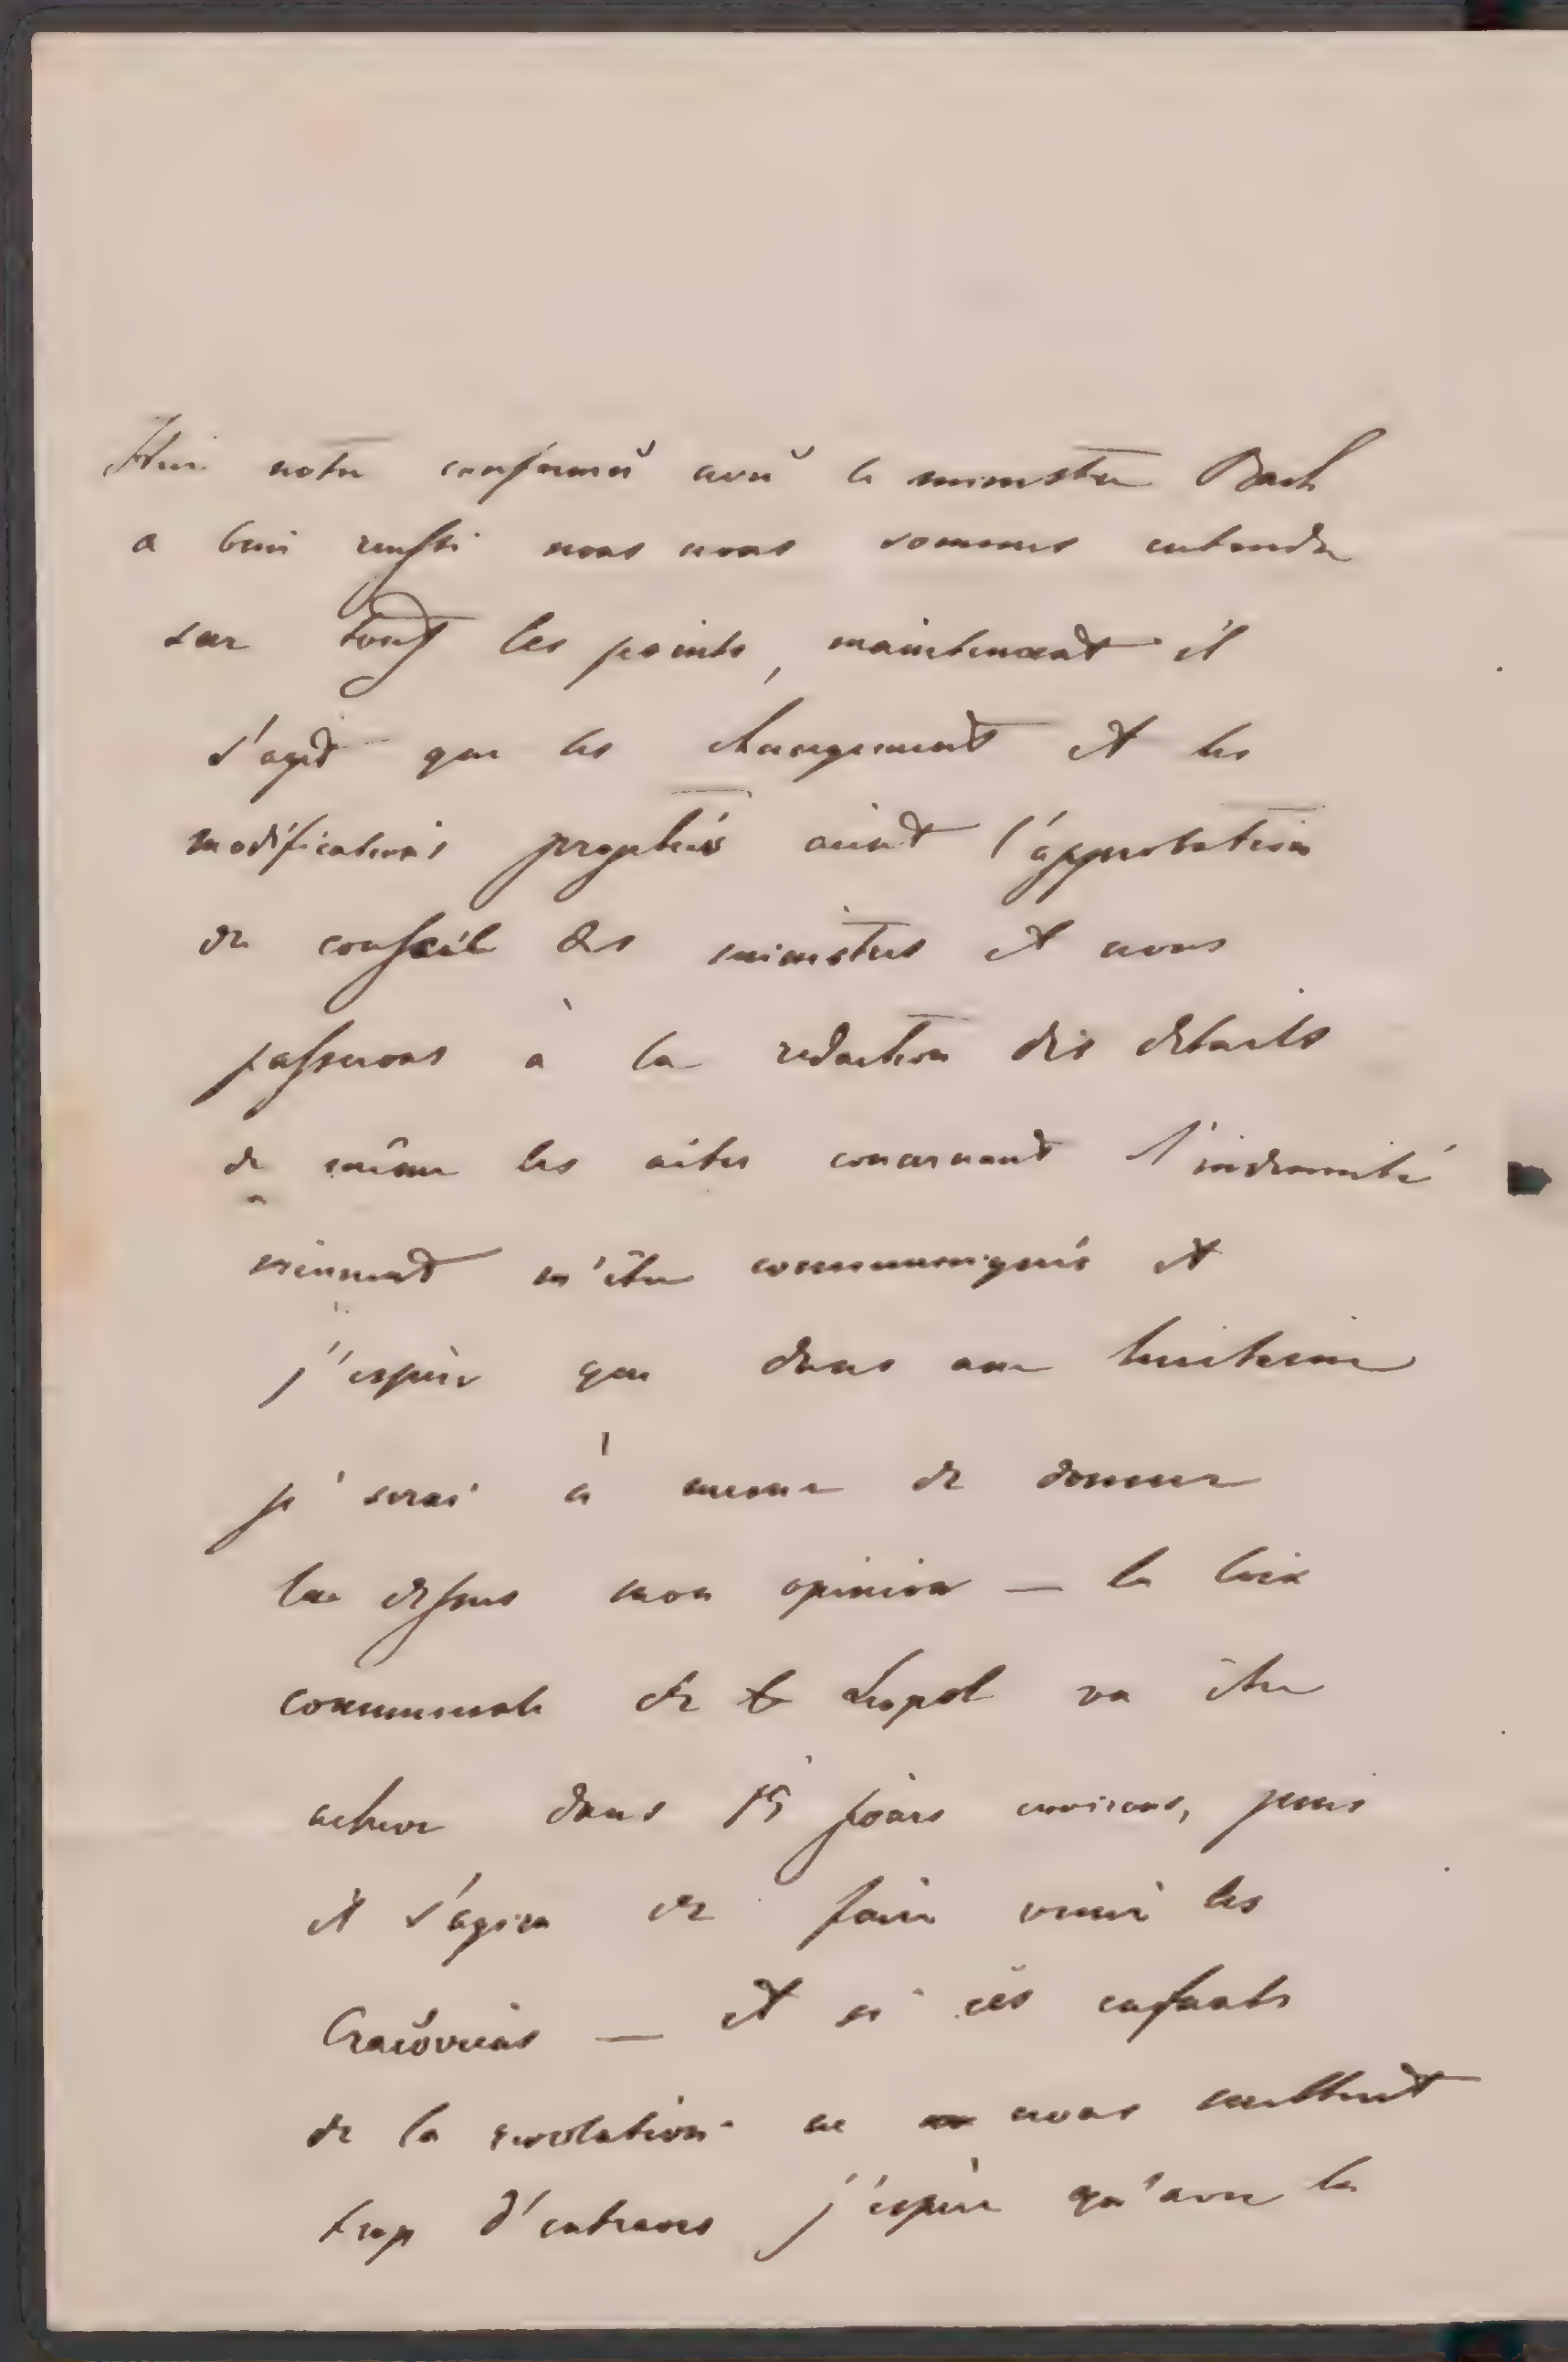 Hier notre conference avec le ministre Bach
a bien reussi nous nous sommes entendu
sur tous les points, maintenant il
s'agit que les changement et les
modifications projetées aient l'approbation
du conseil des ministres et nous
passerons à la redaction des details
de même les actes concernant l'indemnité
viennent m'être communiqués et
j'espère que dans une huitaine
je serai à meme de donner
la dessus mon opinion — la loix
communale de Leopol va être
acheve dans 15 jours environs, puis
il s'agira de faire venir les
Cracoviens — et si ces enfants
de la revolution ne nous mettent
trop d'entraves j'espère qu'avec la